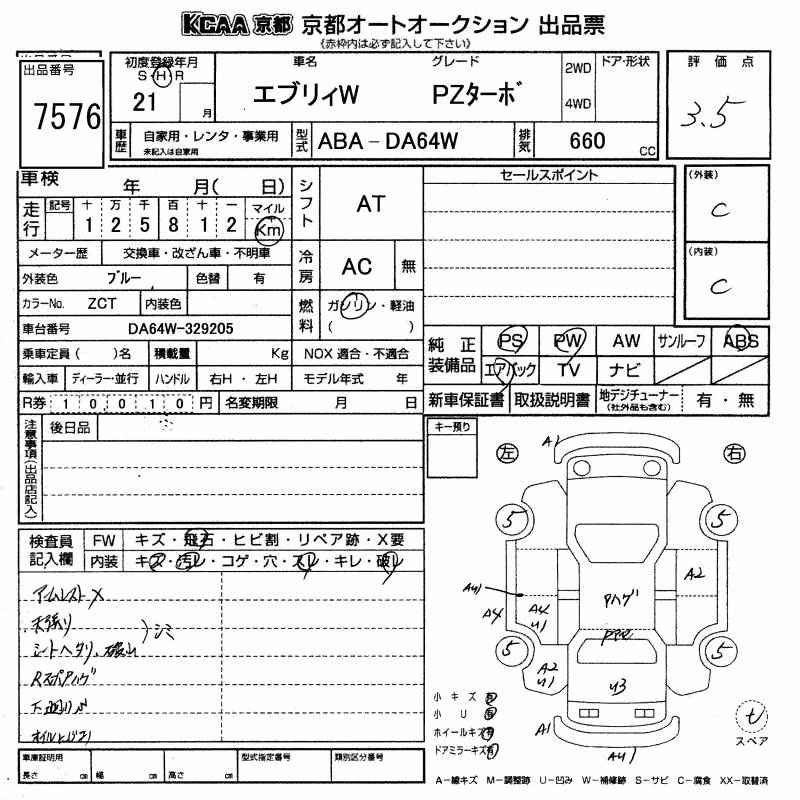 KCAA 京都 京都オートオークション 出品票
《赤枠内は必ず記入して下さい》
出品番号
7576
初度登録年月
S・H・R
21 月
車名 グレード
エブリィW PZターボ
2WD
4WD
ドア・形状
評価点
3.5
車歴
自家用・レンタ・事業用
未記入は自家用
型式
ABA－DA64W
排気
660 CC
車検 年 月( 日)
シフト
AT
セールスポイント
(外装)
C
(内装)
C
走行
記号 十 万 千 百 十 一 マイル
1 2 5 8 1 2 Km
メーター歴 交換車・改ざん車・不明車
冷房
AC 無
外装色 ブルー 色替 有
カラーNo. ZCT 内装色
燃料
ガソリン・軽油
( )
車台番号 DA64W-329205
乗車定員( )名 積載量 Kg NOX 適合・不適合
輸入車 ディーラー・並行 ハンドル 右H・左H モデル年式 年
R券 10010円 名変期限 月 日
純正装備品
PS PW AW サンルーフ ABS
エアバック TV ナビ
新車保証書 取扱説明書 地デジチューナー
(社外品も含む)
有・無
注意事項(出品店記入)
後日品
キー預り
左 右
検査員記入欄
FW キズ・飛石・ヒビ割・リペア跡・X要
内装 キズ・汚レ・コゲ・穴・スレ・キレ・破レ
アームレストX
天張り
シミ
シートヘタリ、破レ
下廻りサビ
A1
5 5
A2
A4
A4
U1
Pハゲ
5 5
A2
U1
U3
A1
小キズ 有
小U 有
ホイールキズ 有
ドアミラーキズ 有
スペア
車庫証明用
長さ cm 幅 cm 高さ cm
型式指定番号
類別区分番号
A－線キズ M－調整跡 U－凹み W－補修跡 S－サビ C－腐食 XX－取替済